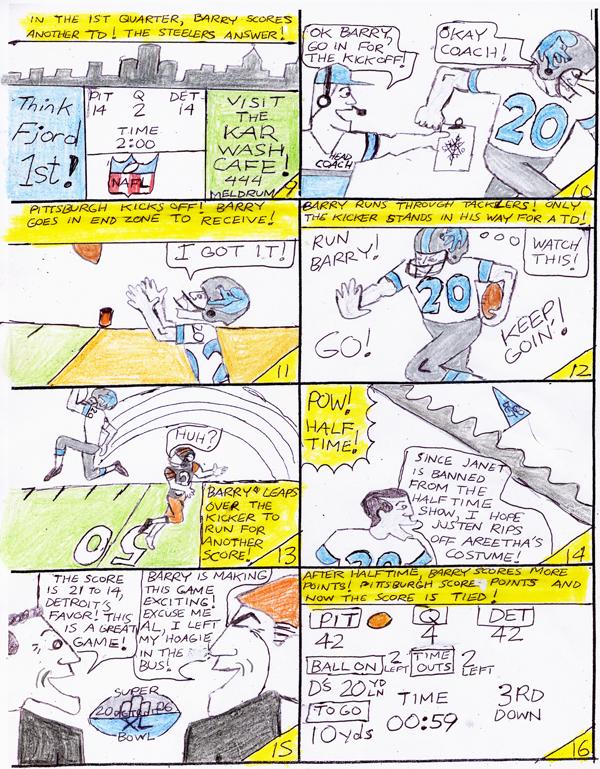 IN THE 1ST QUARTER, BARRY SCORES
ANOTHER TD! THE STEELERS ANSWER!
Think
Fjord
1st!
PIT Q DET
14 2 14
TIME
2:00
NAFL
VISIT
THE
KAR
WASH
CAFE!
444
MELDRUM
9
1
OK BARRY,
GO IN FOR
THE KICKOFF!
OKAY
COACH!
20
HEAD
COACH
10
PITTSBURGH KICKS OFF! BARRY
GOES IN END ZONE TO RECEIVE!
I GOT IT!
20
11
BARRY RUNS THROUGH TACKLERS! ONLY
THE KICKER STANDS IN HIS WAY FOR A TD!
RUN
BARRY!
WATCH
THIS!
20
GO!
KEEP
GOIN'!
12
20
HUH?
50
BARRY LEAPS
OVER THE
KICKER TO
RUN FOR
ANOTHER
SCORE!
13
POW!
HALF
TIME!
SINCE JANET
IS BANNED
FROM THE
HALF TIME
SHOW, I HOPE
JUSTEN RIPS
OFF AREETHA'S
COSTUME!
20
14
THE SCORE
IS 21 TO 14,
DETROIT'S
FAVOR! THIS
IS A GREAT
GAME!
BARRY IS MAKING
THIS GAME
EXCITING!
EXCUSE ME
AL, I LEFT
MY HOAGIE
IN THE
BUS!
SUPER
XL
BOWL
15
AFTER HALFTIME, BARRY SCORES MORE
POINTS! PITTSBURGH SCORE POINTS AND
NOW THE SCORE IS TIED!
PIT Q DET
42 4 42
BALL ON 2 LEFT TIME OUTS 2 LEFT
D'S 20 YD LN
TIME 3RD
TO GO 00:59 DOWN
10 yds
16